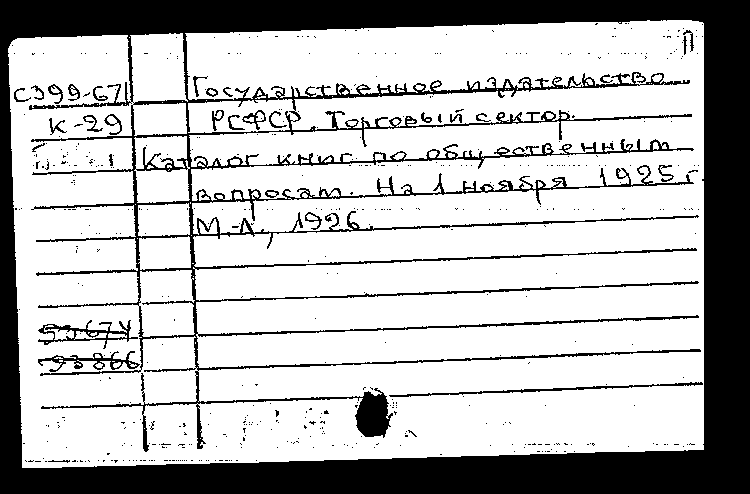 П
С399-671 Государственное издательство
К-29 РСФСР. Торговый сектор.
Каталог книг по общественным
вопросам. На 1 ноября 1925 г.
М.-Л., 1926.
93866